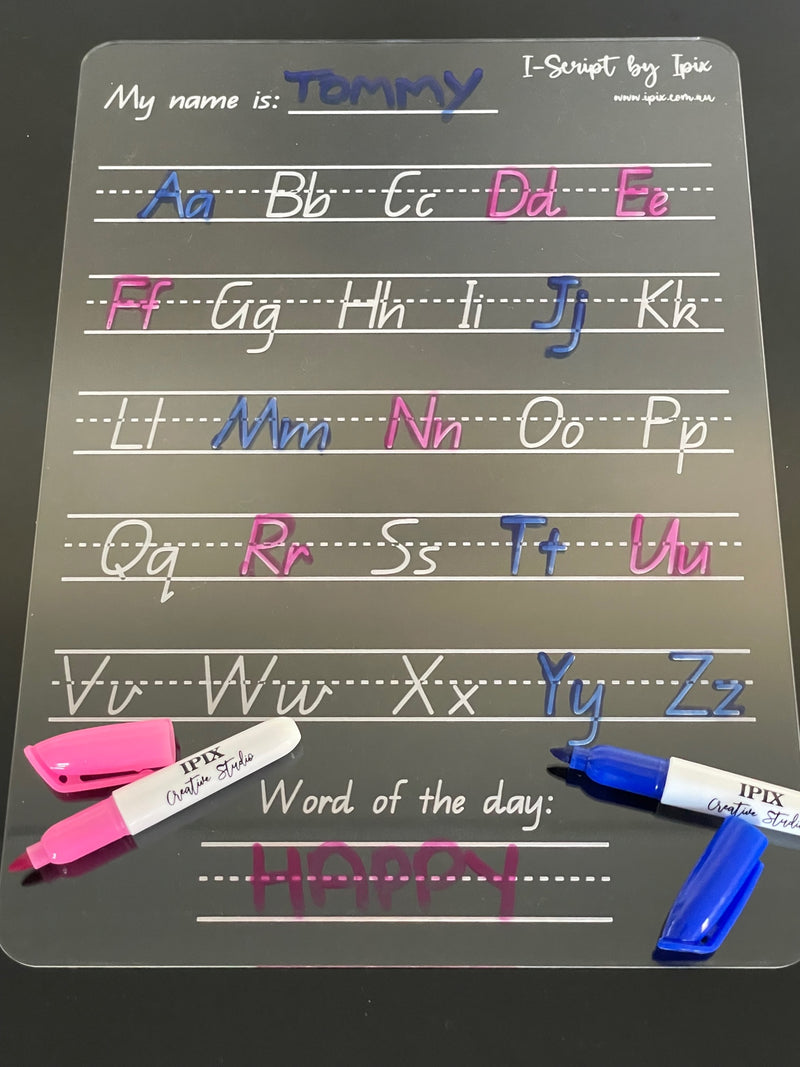 I-Script by Ipix
www.ipix.com.au
My name is: TOMMY
Aa Bb Cc Dd Ee
Ff Gg Hh Ii Jj Kk
Ll Mm Nn Oo Pp
Qq Rr Ss Tt Uu
Vv Ww Xx Yy Zz
IPIX
Creative Studio
IPIX
Creative Studio
Word of the day:
HAPPY